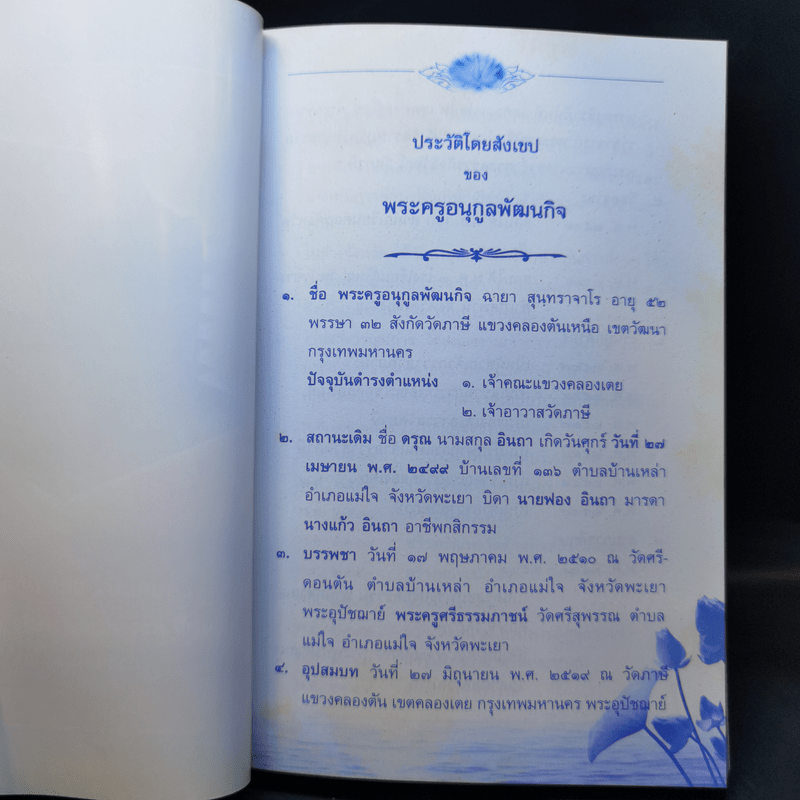 ประวัติโดยสังเขป
ของ
พระครูอนุกูลพัฒนกิจ
๑. ชื่อ พระครูอนุกูลพัฒนกิจ ฉายา สุนฺทราจาโร อายุ ๕๒
พรรษา ๓๒ สังกัดวัดภาษี แขวงคลองตันเหนือ เขตวัฒนา
กรุงเทพมหานคร
ปัจจุบันดำรงตำแหน่ง ๑. เจ้าคณะแขวงคลองเตย
๒. เจ้าอาวาสวัดภาษี
๒. สถานะเดิม ชื่อ ดรุณ นามสกุล อินถา เกิดวันศุกร์ วันที่ ๒๗
เมษายน พ.ศ. ๒๔๙๙ บ้านเลขที่ ๑๓๖ ตำบลบ้านเหล่า
อำเภอแม่ใจ จังหวัดพะเยา บิดา นายฟอง อินถา มารดา
นางแก้ว อินถา อาชีพกสิกรรม
๓. บรรพชา วันที่ ๑๗ พฤษภาคม พ.ศ. ๒๕๑๐ ณ วัดศรี-
ดอนตัน ตำบลบ้านเหล่า อำเภอแม่ใจ จังหวัดพะเยา
พระอุปัชฌาย์ พระครูศรีธรรมภาชน์ วัดศรีสุพรรณ ตำบล
แม่ใจ อำเภอแม่ใจ จังหวัดพะเยา
๔. อุปสมบท วันที่ ๒๗ มิถุนายน พ.ศ. ๒๕๑๙ ณ วัดภาษี
แขวงคลองตัน เขตคลองเตย กรุงเทพมหานคร พระอุปัชฌาย์